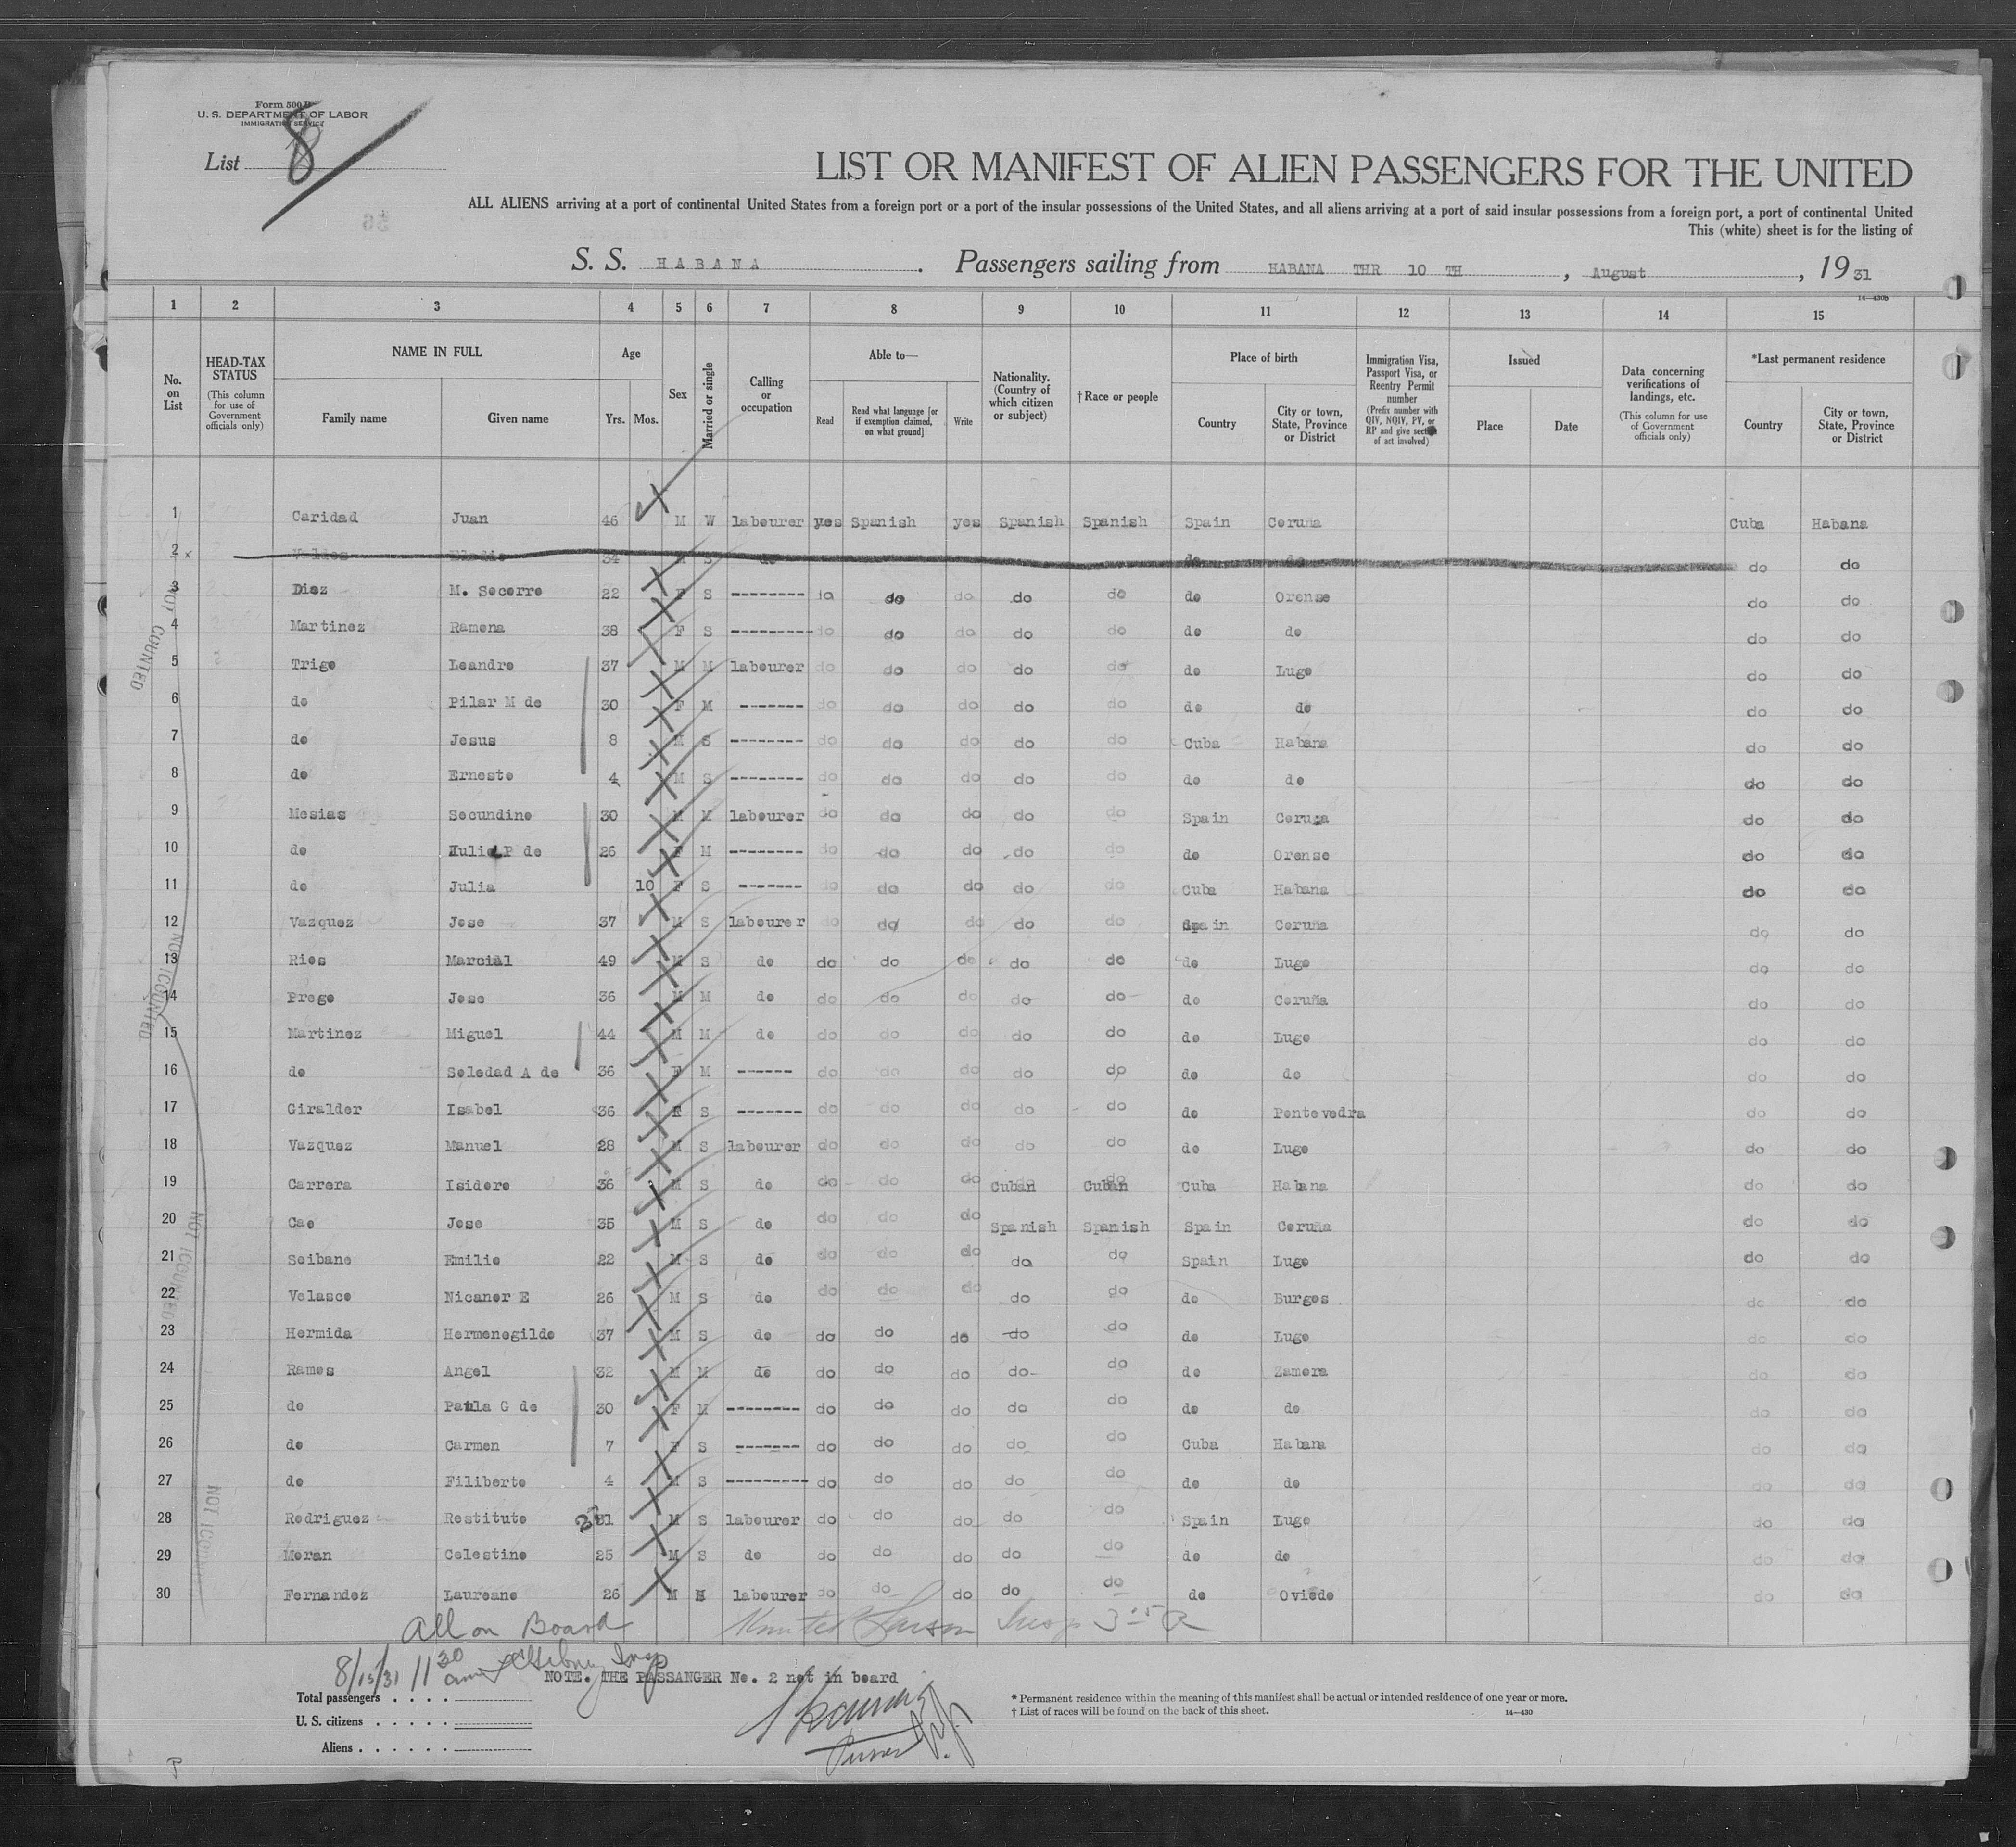 Form 500 B
U. S. DEPARTMENT OF LABOR
IMMIGRATION SERVICE
List 8
LIST OR MANIFEST OF ALIEN PASSENGERS FOR THE UNITED
ALL ALIENS arriving at a port of continental United States from a foreign port or a port of the insular possessions of the United States, and all aliens arriving at a port of said insular possessions from a foreign port, a port of continental United
This (white) sheet is for the listing of
S. S. HABANA. Passengers sailing from HABANA THR 10 TH, August, 1931
14—430b
1 2 3 4 5 6 7 8 9 10 11 12 13 14 15
No. on List
HEAD-TAX STATUS
(This column for use of Government officials only)
NAME IN FULL
Family name Given name
Age
Yrs. Mos.
Sex
Married or single
Calling or occupation
Able to—
Read
Read what language [or if exemption claimed, on what ground]
Write
Nationality. (Country of which citizen or subject)
†Race or people
Place of birth
Country
City or town, State, Province or District
Immigration Visa, Passport Visa, or Reentry Permit number
(Prefix number with QIV, NQIV, PV, or RP and give section of act involved)
Issued
Place Date
Data concerning verifications of landings, etc.
(This column for use of Government officials only)
*Last permanent residence
Country
City or town, State, Province or District
1 Caridad Juan 46 M W labourer yes Spanish yes Spanish Spanish Spain Coruña Cuba Habana
2 x 34 S do do do do do
3 Diaz M. Socorro 22 F S -------- do do do do do do Orense do do
4 Martinez Ramona 38 F S --------- do do do do do do do do do
5 Trigo Leandro 37 M M labourer do do do do do do Lugo do do
6 do Pilar M de 30 F M ------- do do do do do do do do do
7 do Jesus 8 M S -------- do do do do do Cuba Habana do do
8 do Ernesto 4 M S -------- do do do do do do do do do
9 Mesias Secundino 30 M M labourer do do do do do Spain Coruña do do
10 do Julia P de 26 F M -------- do do do do do do Orense do do
11 do Julia 10 F S ------- do do do do do Cuba Habana do do
12 Vazquez Jose 37 M S labourer do do do do do Spain Coruña do do
13 Rios Marcial 49 M S do do do do do do do Lugo do do
14 Prego Jose 36 M M do do do do do do do Coruña do do
15 Martinez Miguel 44 M M do do do do do do do Lugo do do
16 do Soledad A de 36 F M ------ do do do do do do do do do
17 Giralder Isabel 36 F S ------- do do do do do do Pontevedra do do
18 Vazquez Manuel 28 M S labourer do do do do do do Lugo do do
19 Carrera Isidoro 36 M S do do do do Cuban Cuban Cuba Habana do do
20 Cao Jose 35 M S do do do do Spanish Spanish Spain Coruña do do
21 Seibane Emilio 22 M S do do do do do do Spain Lugo do do
22 Velasco Nicanor E 26 M S do do do do do do do Burgos do do
23 Hermida Hermenegildo 37 M S do do do do do do do Lugo do do
24 Ramos Angel 32 M M do do do do do do do Zamora do do
25 do Paula G de 30 F M -------- do do do do do do do do do
26 do Carmen 7 F S ------- do do do do do Cuba Habana do do
27 do Filiberto 4 M S --------- do do do do do do do do do
28 Rodriguez Restituto 31 M S labourer do do do do do Spain Lugo do do
29 Moran Celestino 25 M S do do do do do do do do do do
30 Fernandez Laureano 26 M labourer do do do do do do Oviedo do do
NOT COUNTED
NOT COUNTED
NOT COUNTED
NOT
All on Board Larson Insp
8/15/31 11 30 am Insp
NOTE. THE PASSANGER No. 2 not in board
Total passengers . . . .
U. S. citizens . . . . .
Aliens . . . . . .
Purser
* Permanent residence within the meaning of this manifest shall be actual or intended residence of one year or more.
† List of races will be found on the back of this sheet.
14—430